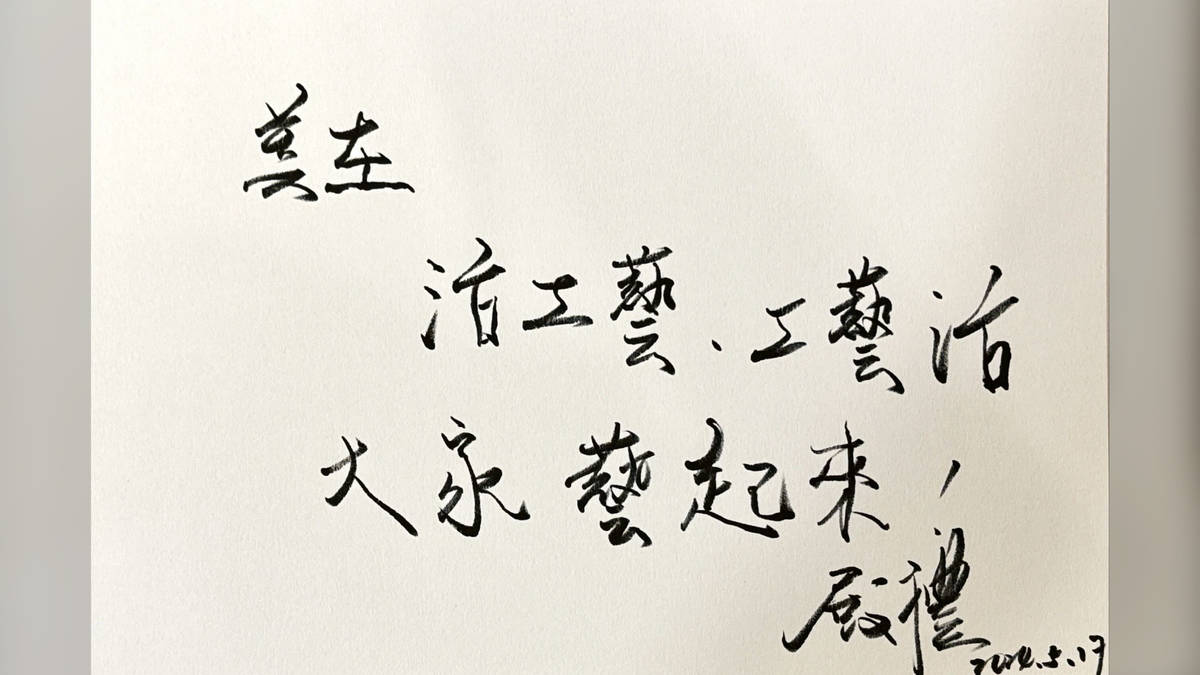 美在
活工藝、工藝活
大家藝起來！
殿禮
2024.5.17